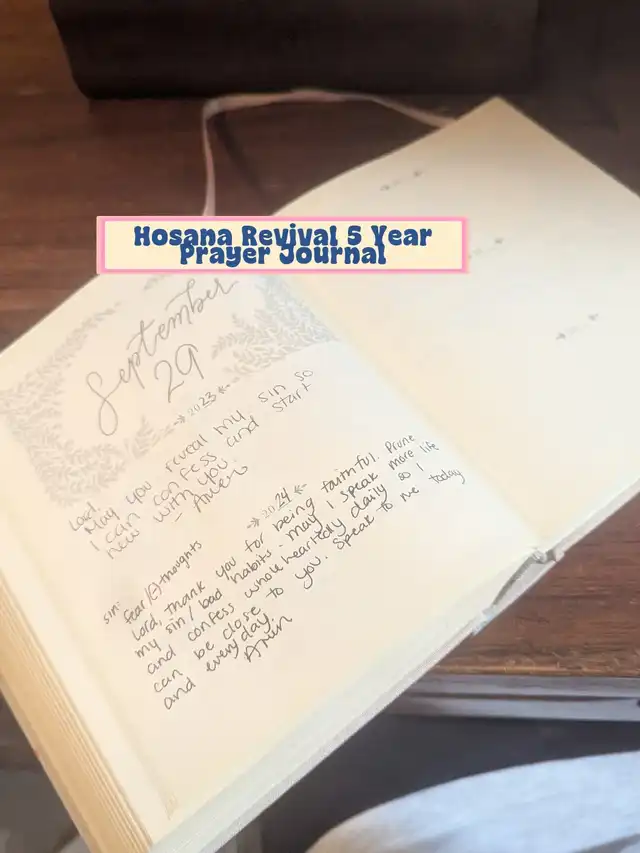 Hosana Revival 5 Year
Prayer Journal
September
29
2023
Lord,
May you reveal my sin so
I can confess and start
new with you.
- Amen
2024
sin: fear/(-) thoughts
Lord, thank you for being faithful. Prune
my sin/bad habits. May I speak more life
and confess wholeheartedly daily so I
can be close to you. Speak to me today
and everyday.
Amen